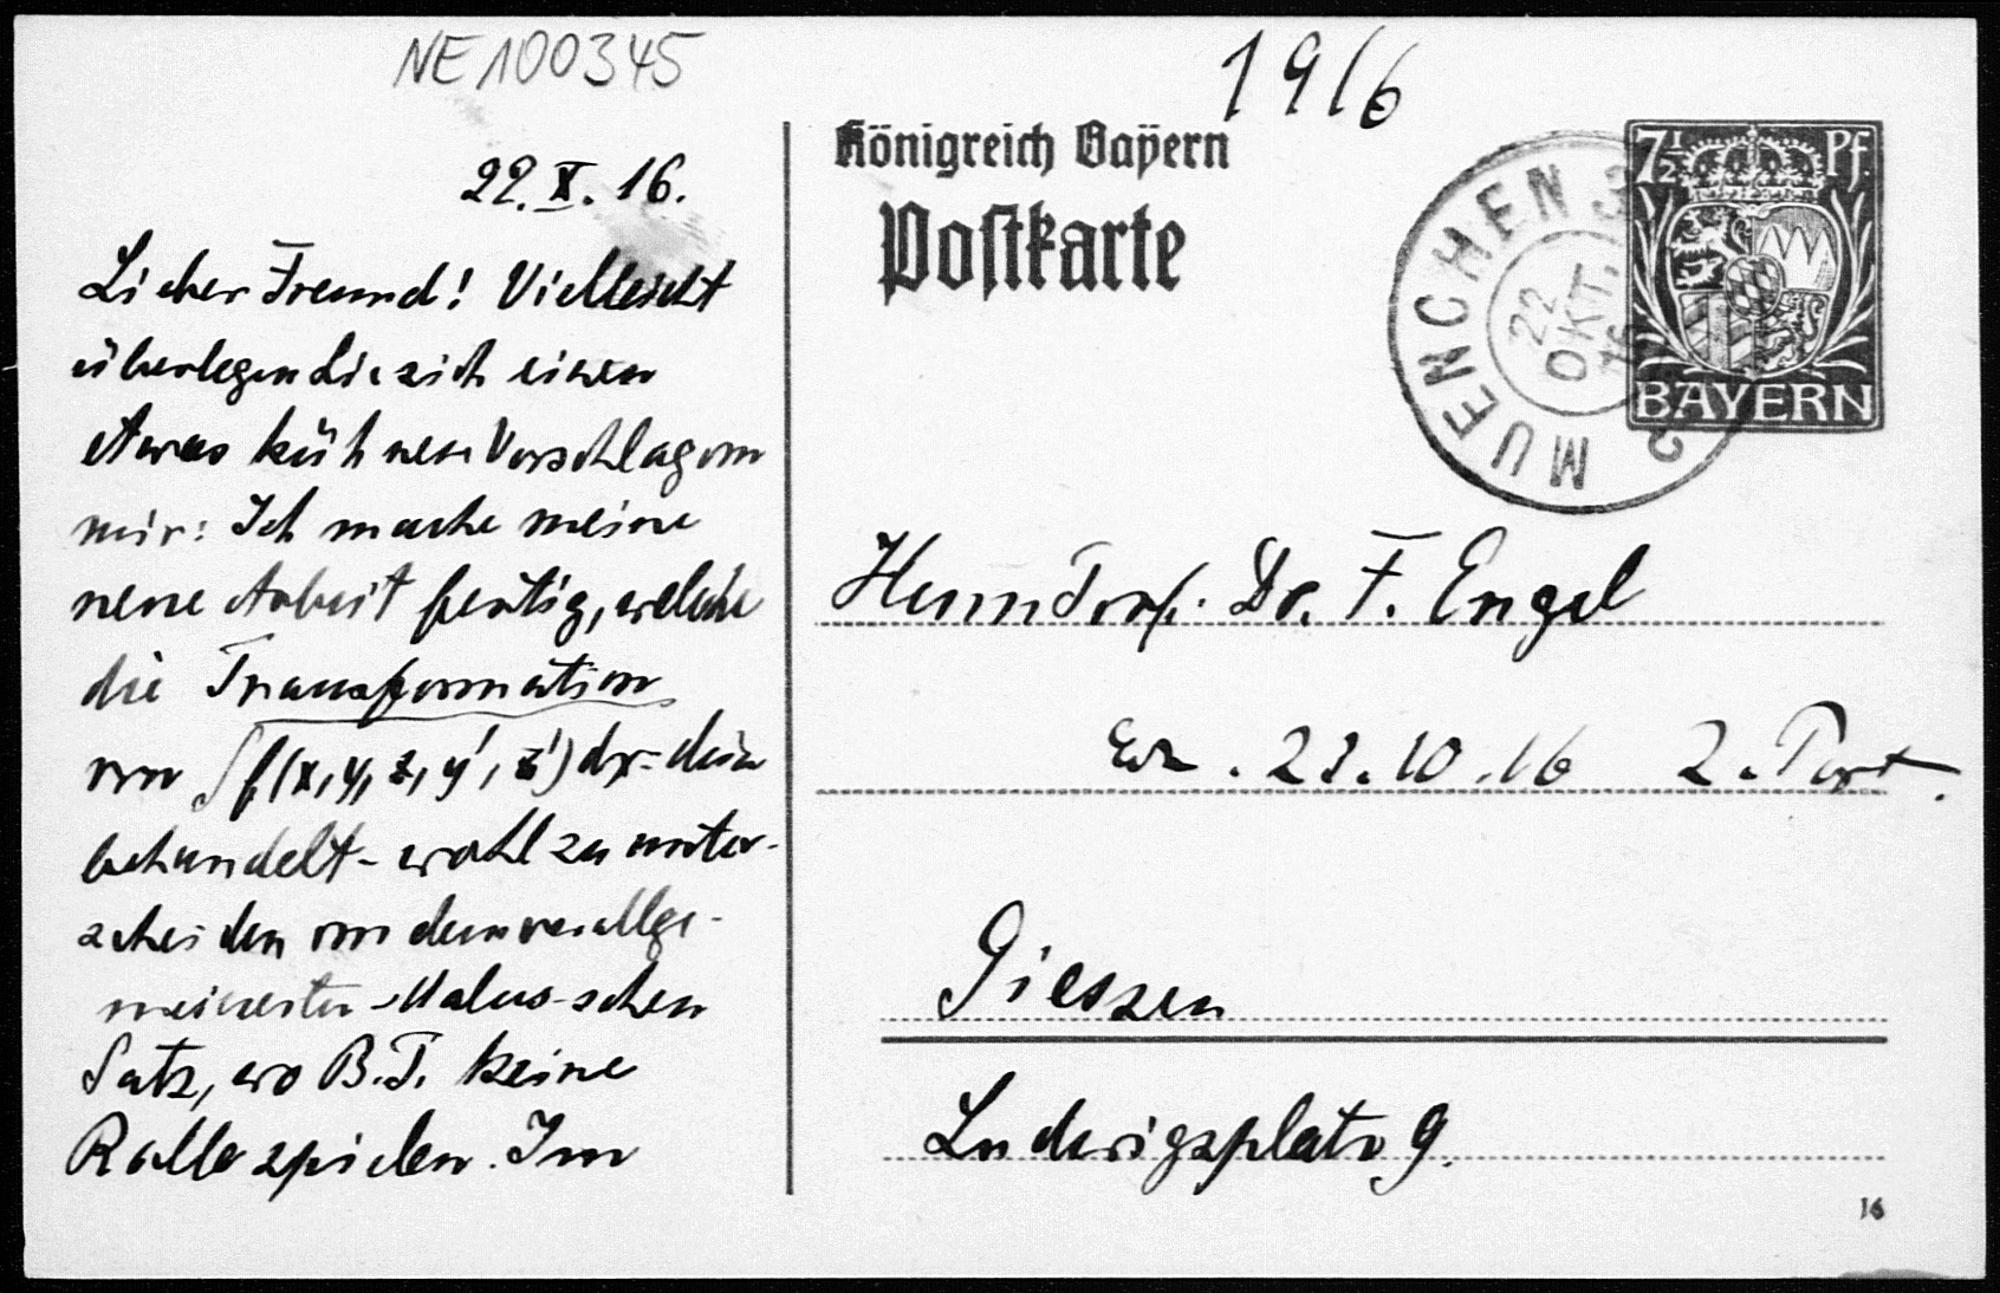 NE 100345
1916
22. X. 16.
Lieber Freund! Vielleicht
überlegen Sie sich einen
etwas kühnen Vorschlag von
mir: Ich mache meine
neue Arbeit fertig, welche
die Transformation
von ∫f(x, y, z, y', z')dx-
behandelt - wohl zu unter-
scheiden von dem verallge-
meinerten Malus-schen
Satz, wo B.T. keine
Rolle spielen. Im
Königreich Bayern
Postkarte
MUENCHEN
22
OKT.
16
7½ Pf.
BAYERN
Herrn Prof. Dr. F. Engel
23.10.16 2. Post.
Giessen
Ludwigsplatz 9.
16